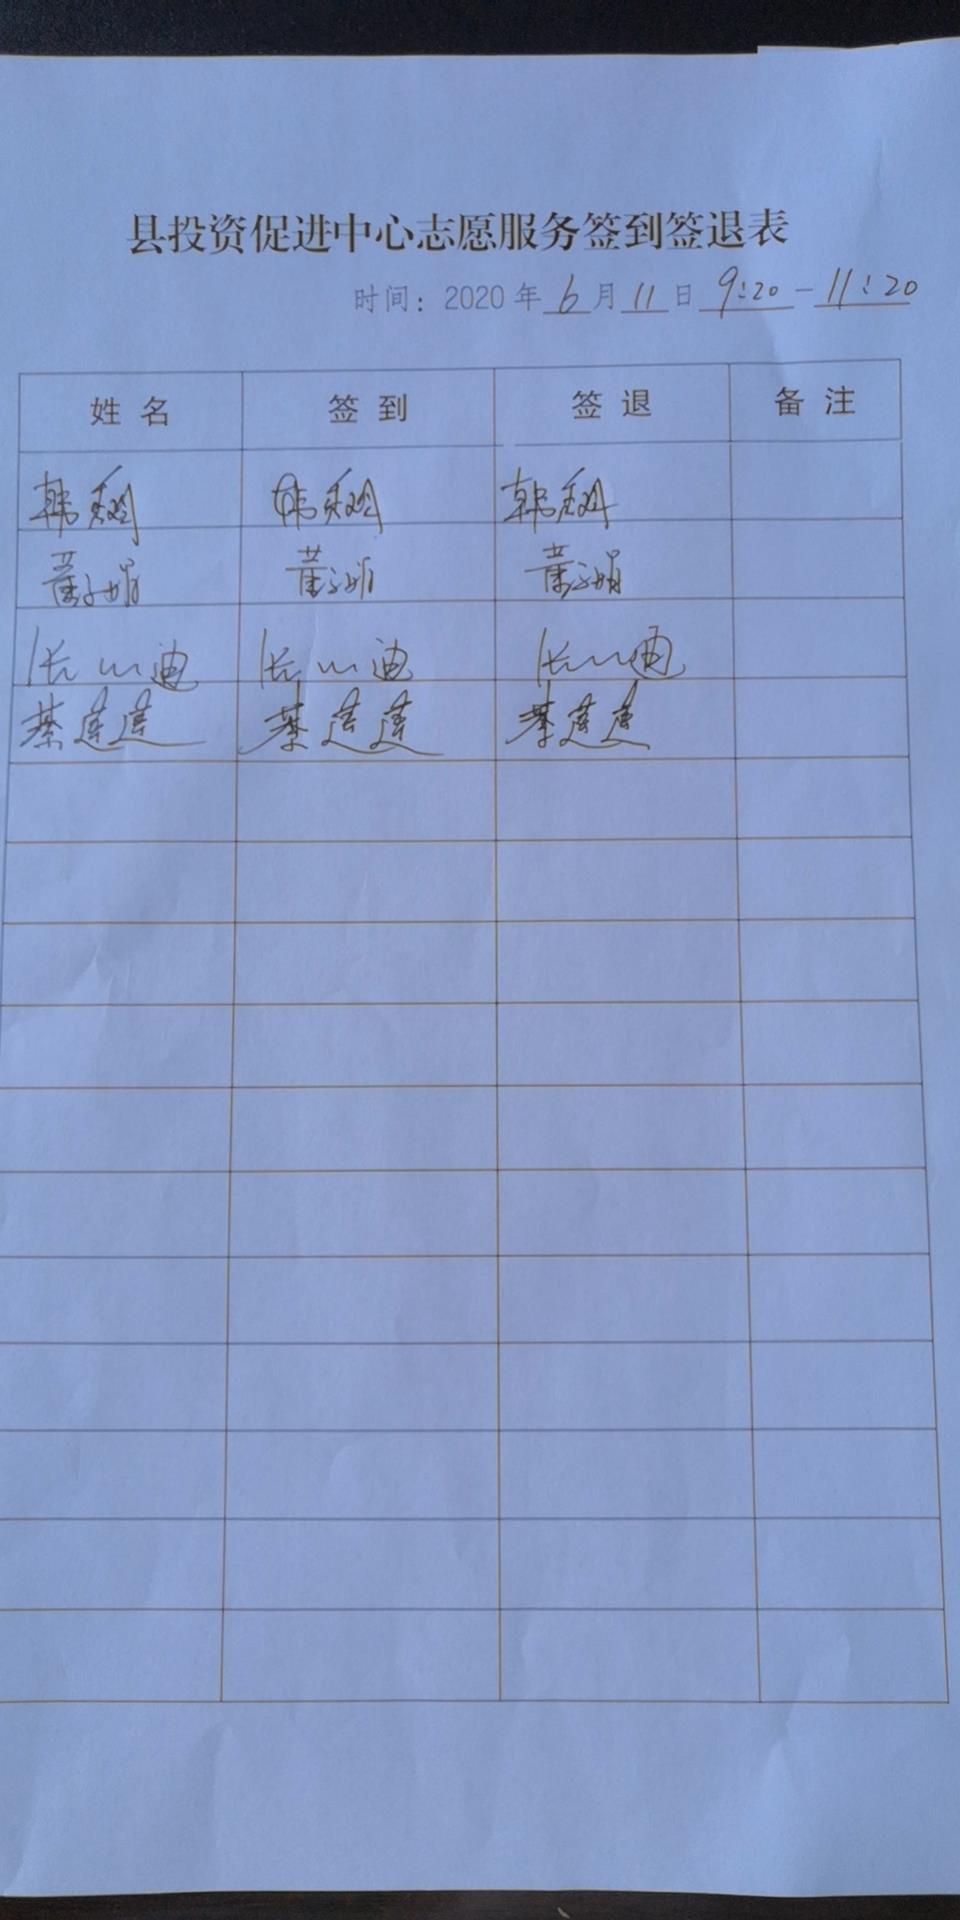 县投资促进中心志愿服务签到签退表
时间：2020年6月11日9:20-11:20
姓名 签到 签退 备注
韩 韩 韩
董子娟 董子娟 董子娟
张山迪 张山迪 张山迪
蔡莲莲 蔡莲莲 蔡莲莲